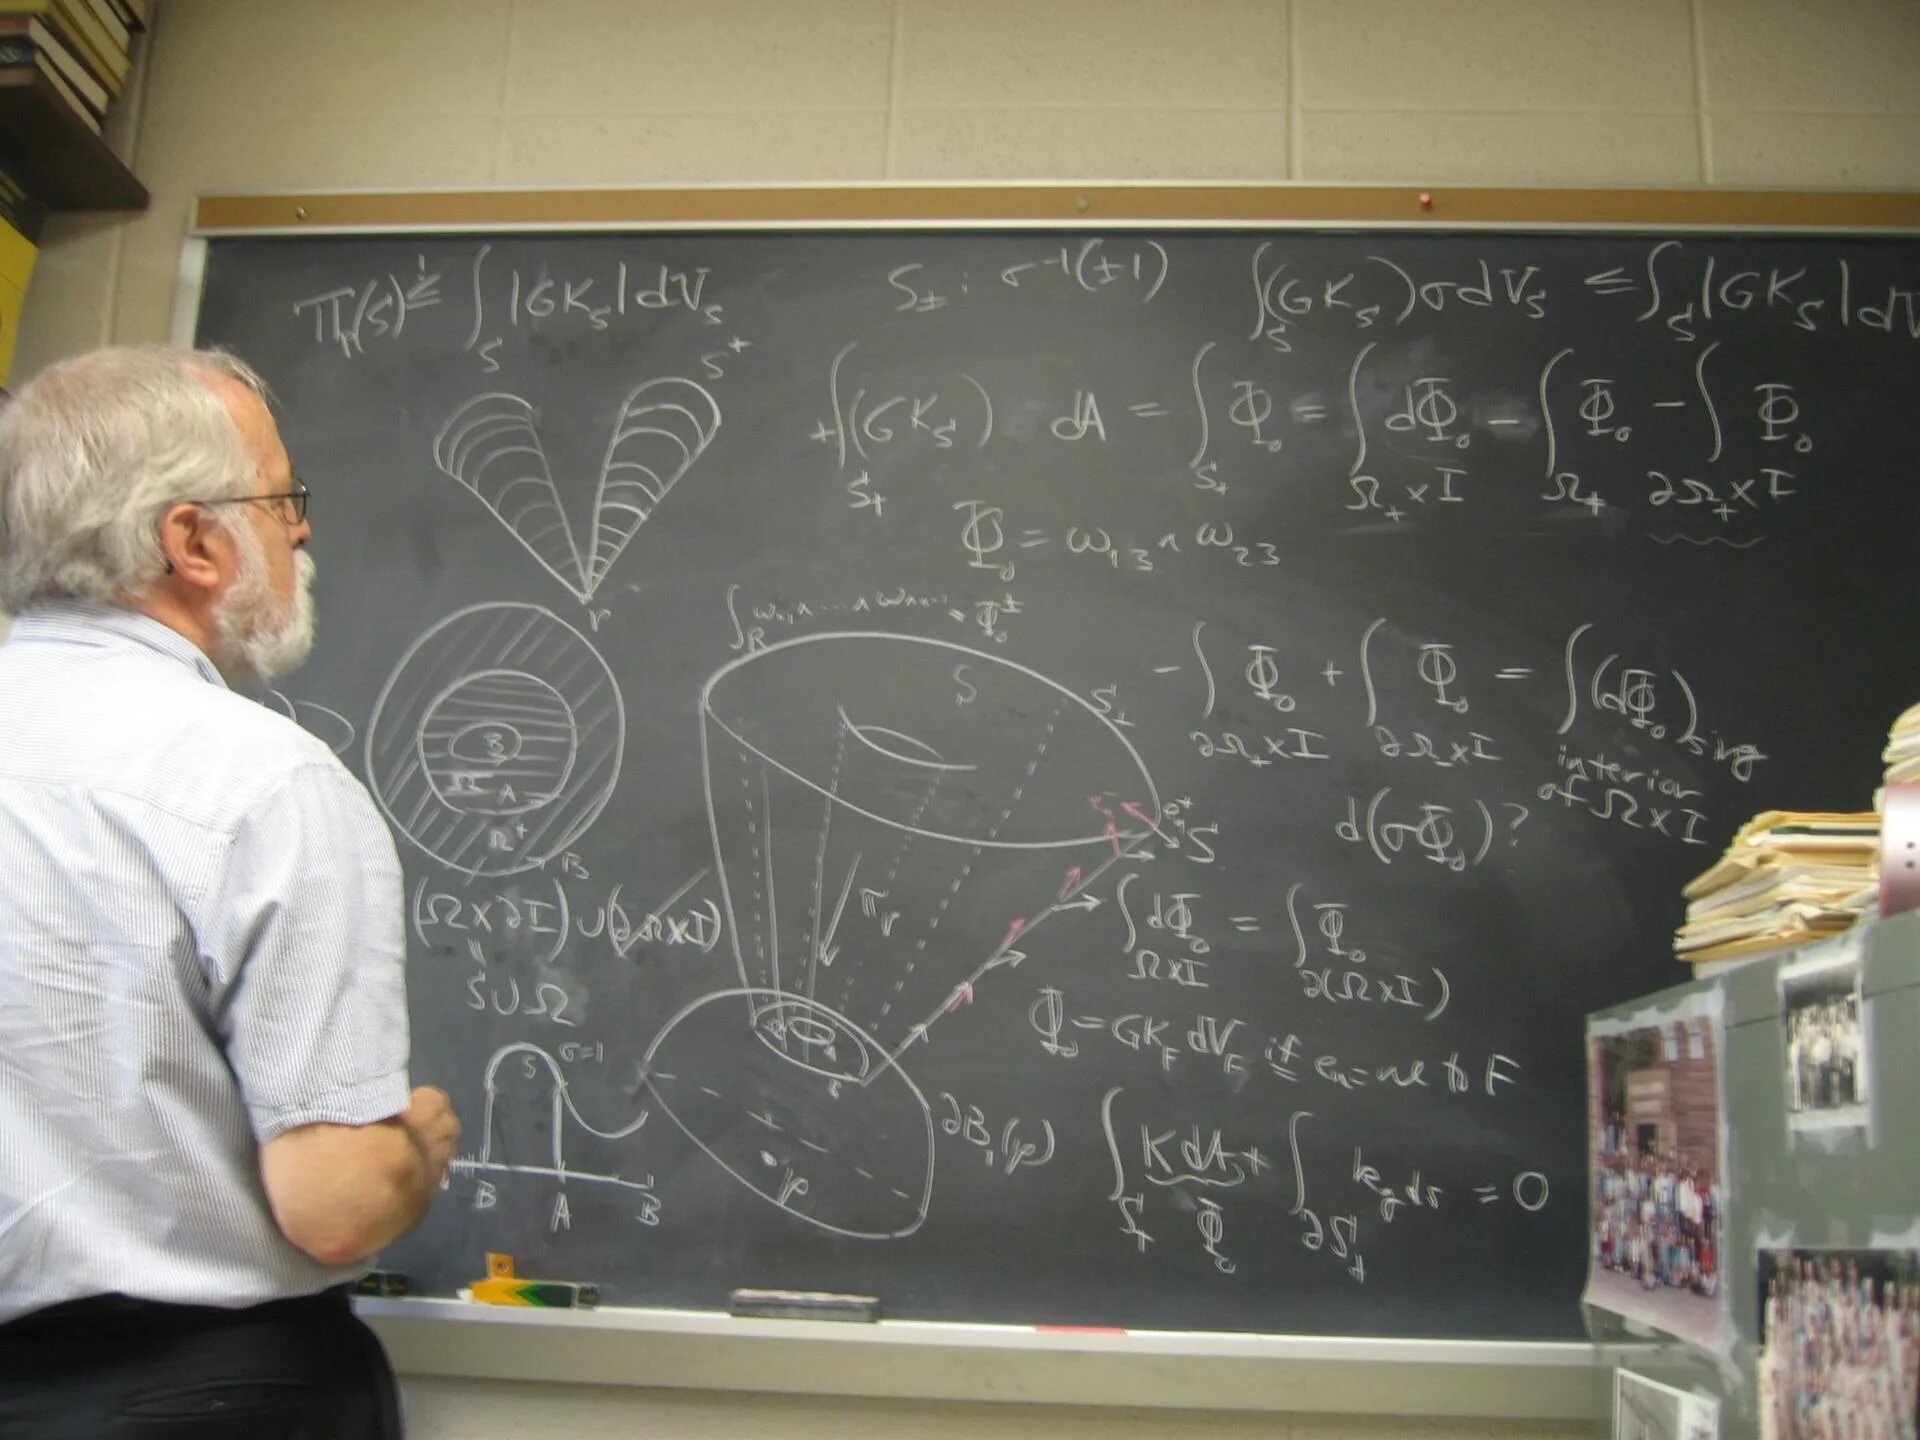 ∫_S |GK_S| dV_S
S_± : σ^{-1}(±1)
∫_S (GK_S) σ dV_S ≤ ∫_S |GK_S| dV
S*
+∫_{S_+} (GK_S) dA = ∫_{S_+} Φ_0 = ∫_{Ω_+ × I} dΦ_0 − ∫_{Ω_+} Φ_0 − ∫_{∂Ω_+ × I} Φ_0
Φ_0 = ω_{13} ∧ ω_{23}
r
S
S_+
−∫_{∂Ω_+ × I} Φ_0 + ∫_{∂Ω_- × I} Φ_0 = ∫ (dΦ_0)_{sing}
interior
of Ω × I
B
Ω_- A
Ω^+
B
d(σΦ_0)?
S
π_r
(Ω × ∂I) ∪ (∂Ω × I)
"
S ∪ Ω
∫_{Ω × I} dΦ_0 = ∫_{∂(Ω × I)} Φ_0
Φ_0 = GK_F dV_F if e_n = ne to F
S
σ=1
∂B_1(p)
p
∫_{S_+} K dA + ∫_{∂S_+} k_g ds = 0
Φ_0
B
A
B